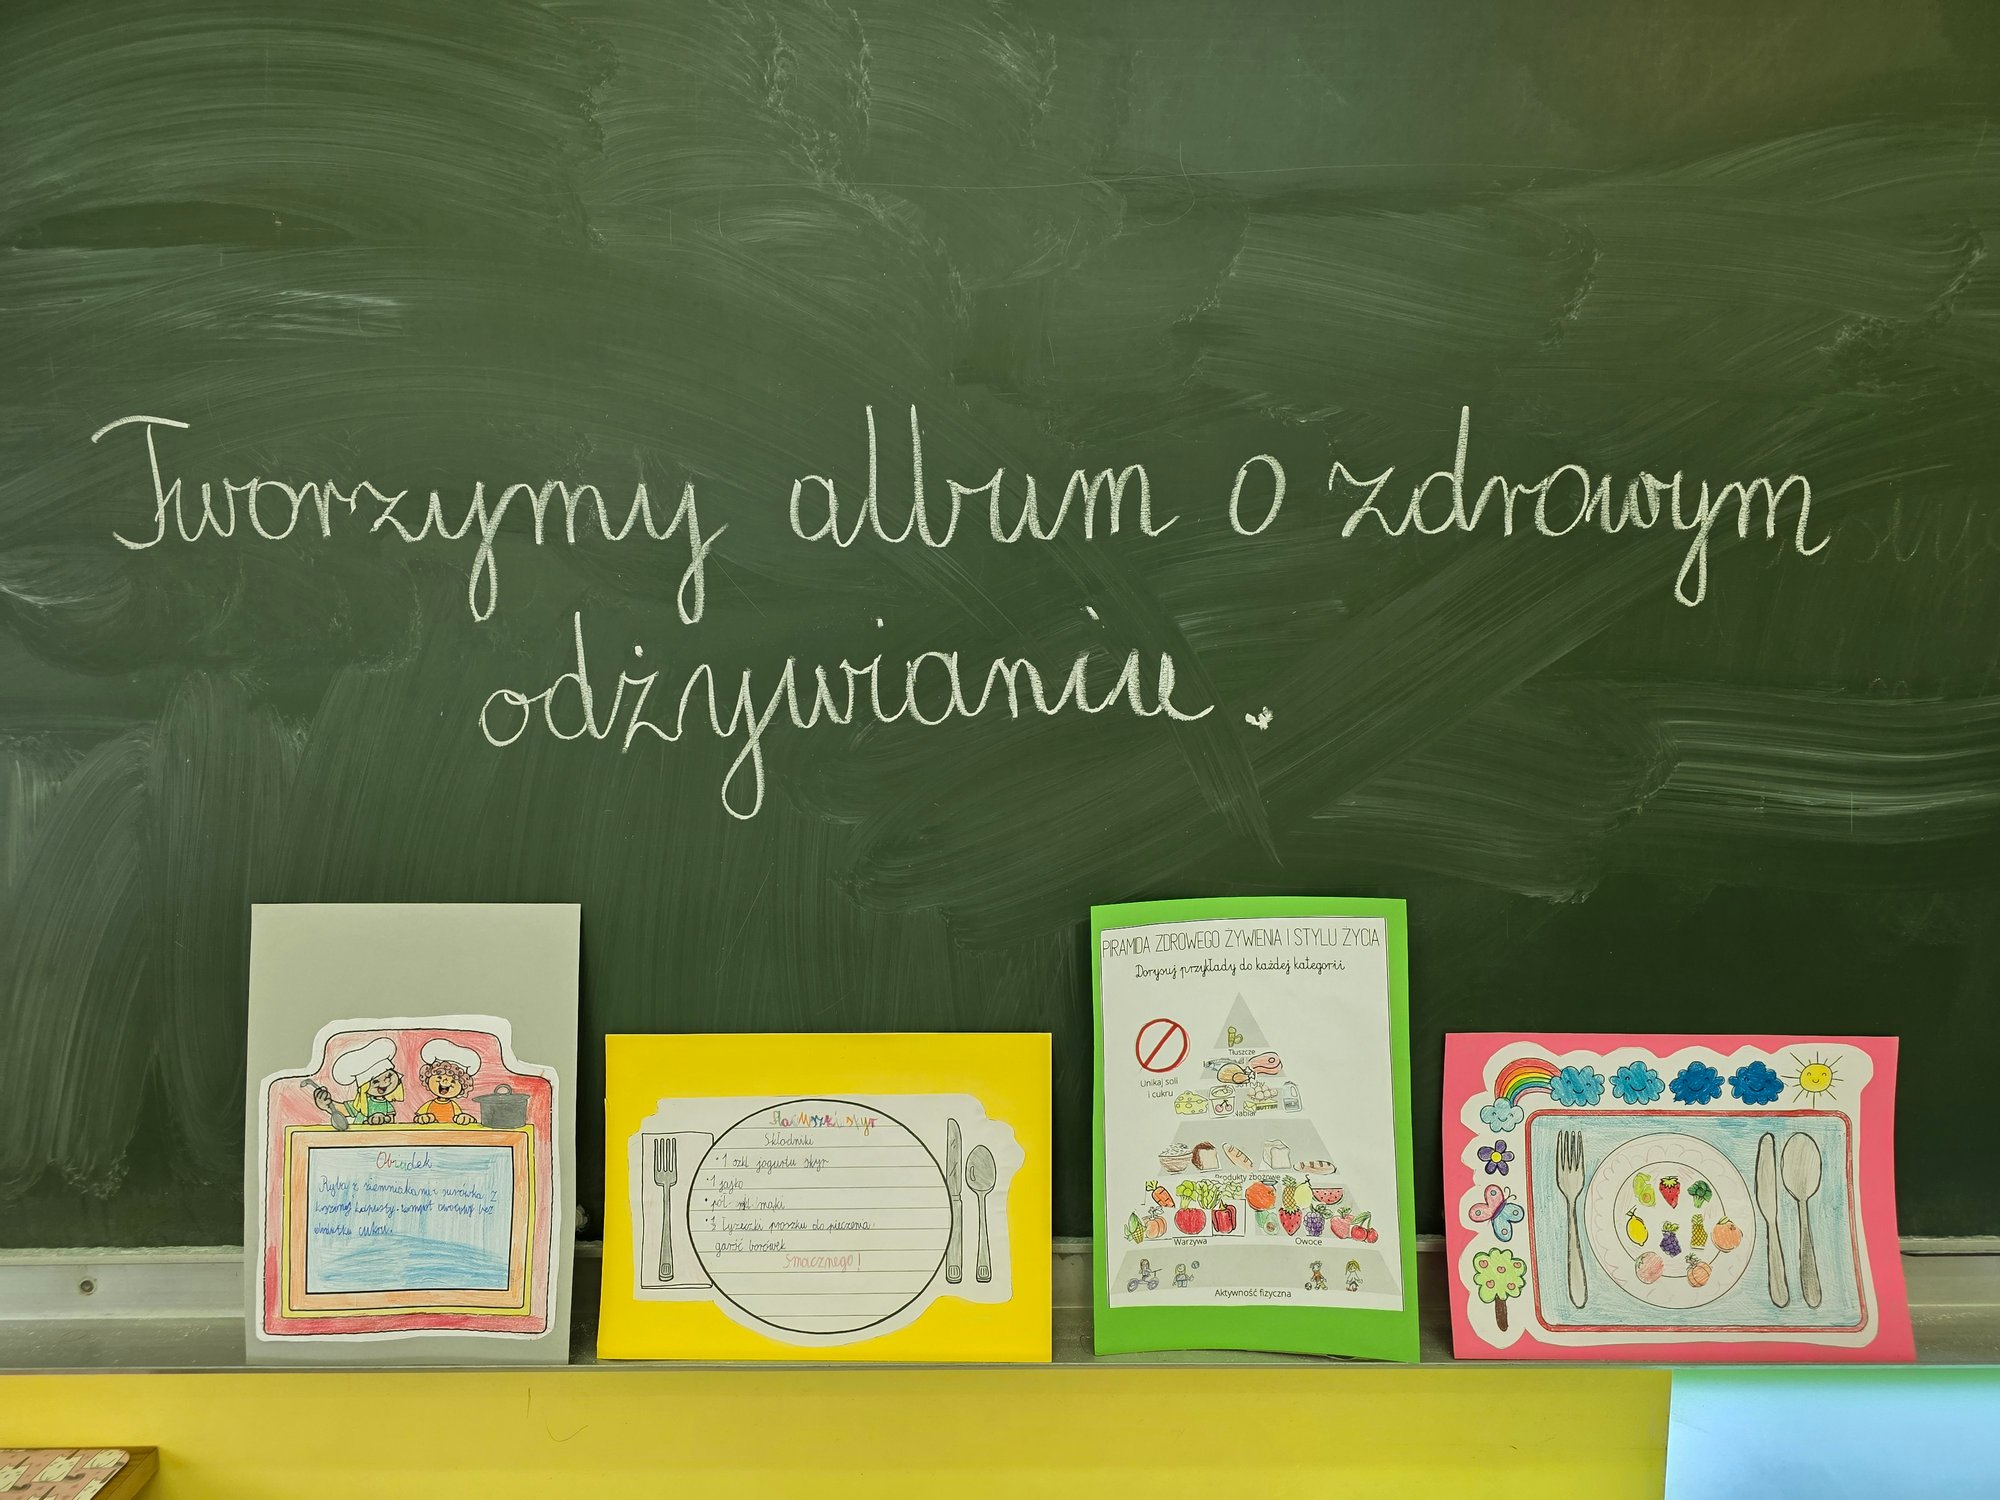 Tworzymy album o zdrowym
odżywianiu.
Obiadek
Ryba z ziemniakami i surówka z
kiszonej kapusty. kompot owocowy bez
dodatku cukru.
Placuszki skyr
Składniki
• 1 szkl jogurtu skyr
• 1 jajko
• pół szkl mąki
• 3 łyżeczki proszku do pieczenia
garść borówek
Smacznego!
PIRAMIDA ZDROWEGO ŻYWIENIA I STYLU ŻYCIA
Dorysuj przykłady do każdej kategorii
Unikaj soli
i cukru
Tłuszcze
Nabiał
BUTTER
Produkty zbożowe
Warzywa
Owoce
Aktywność fizyczna